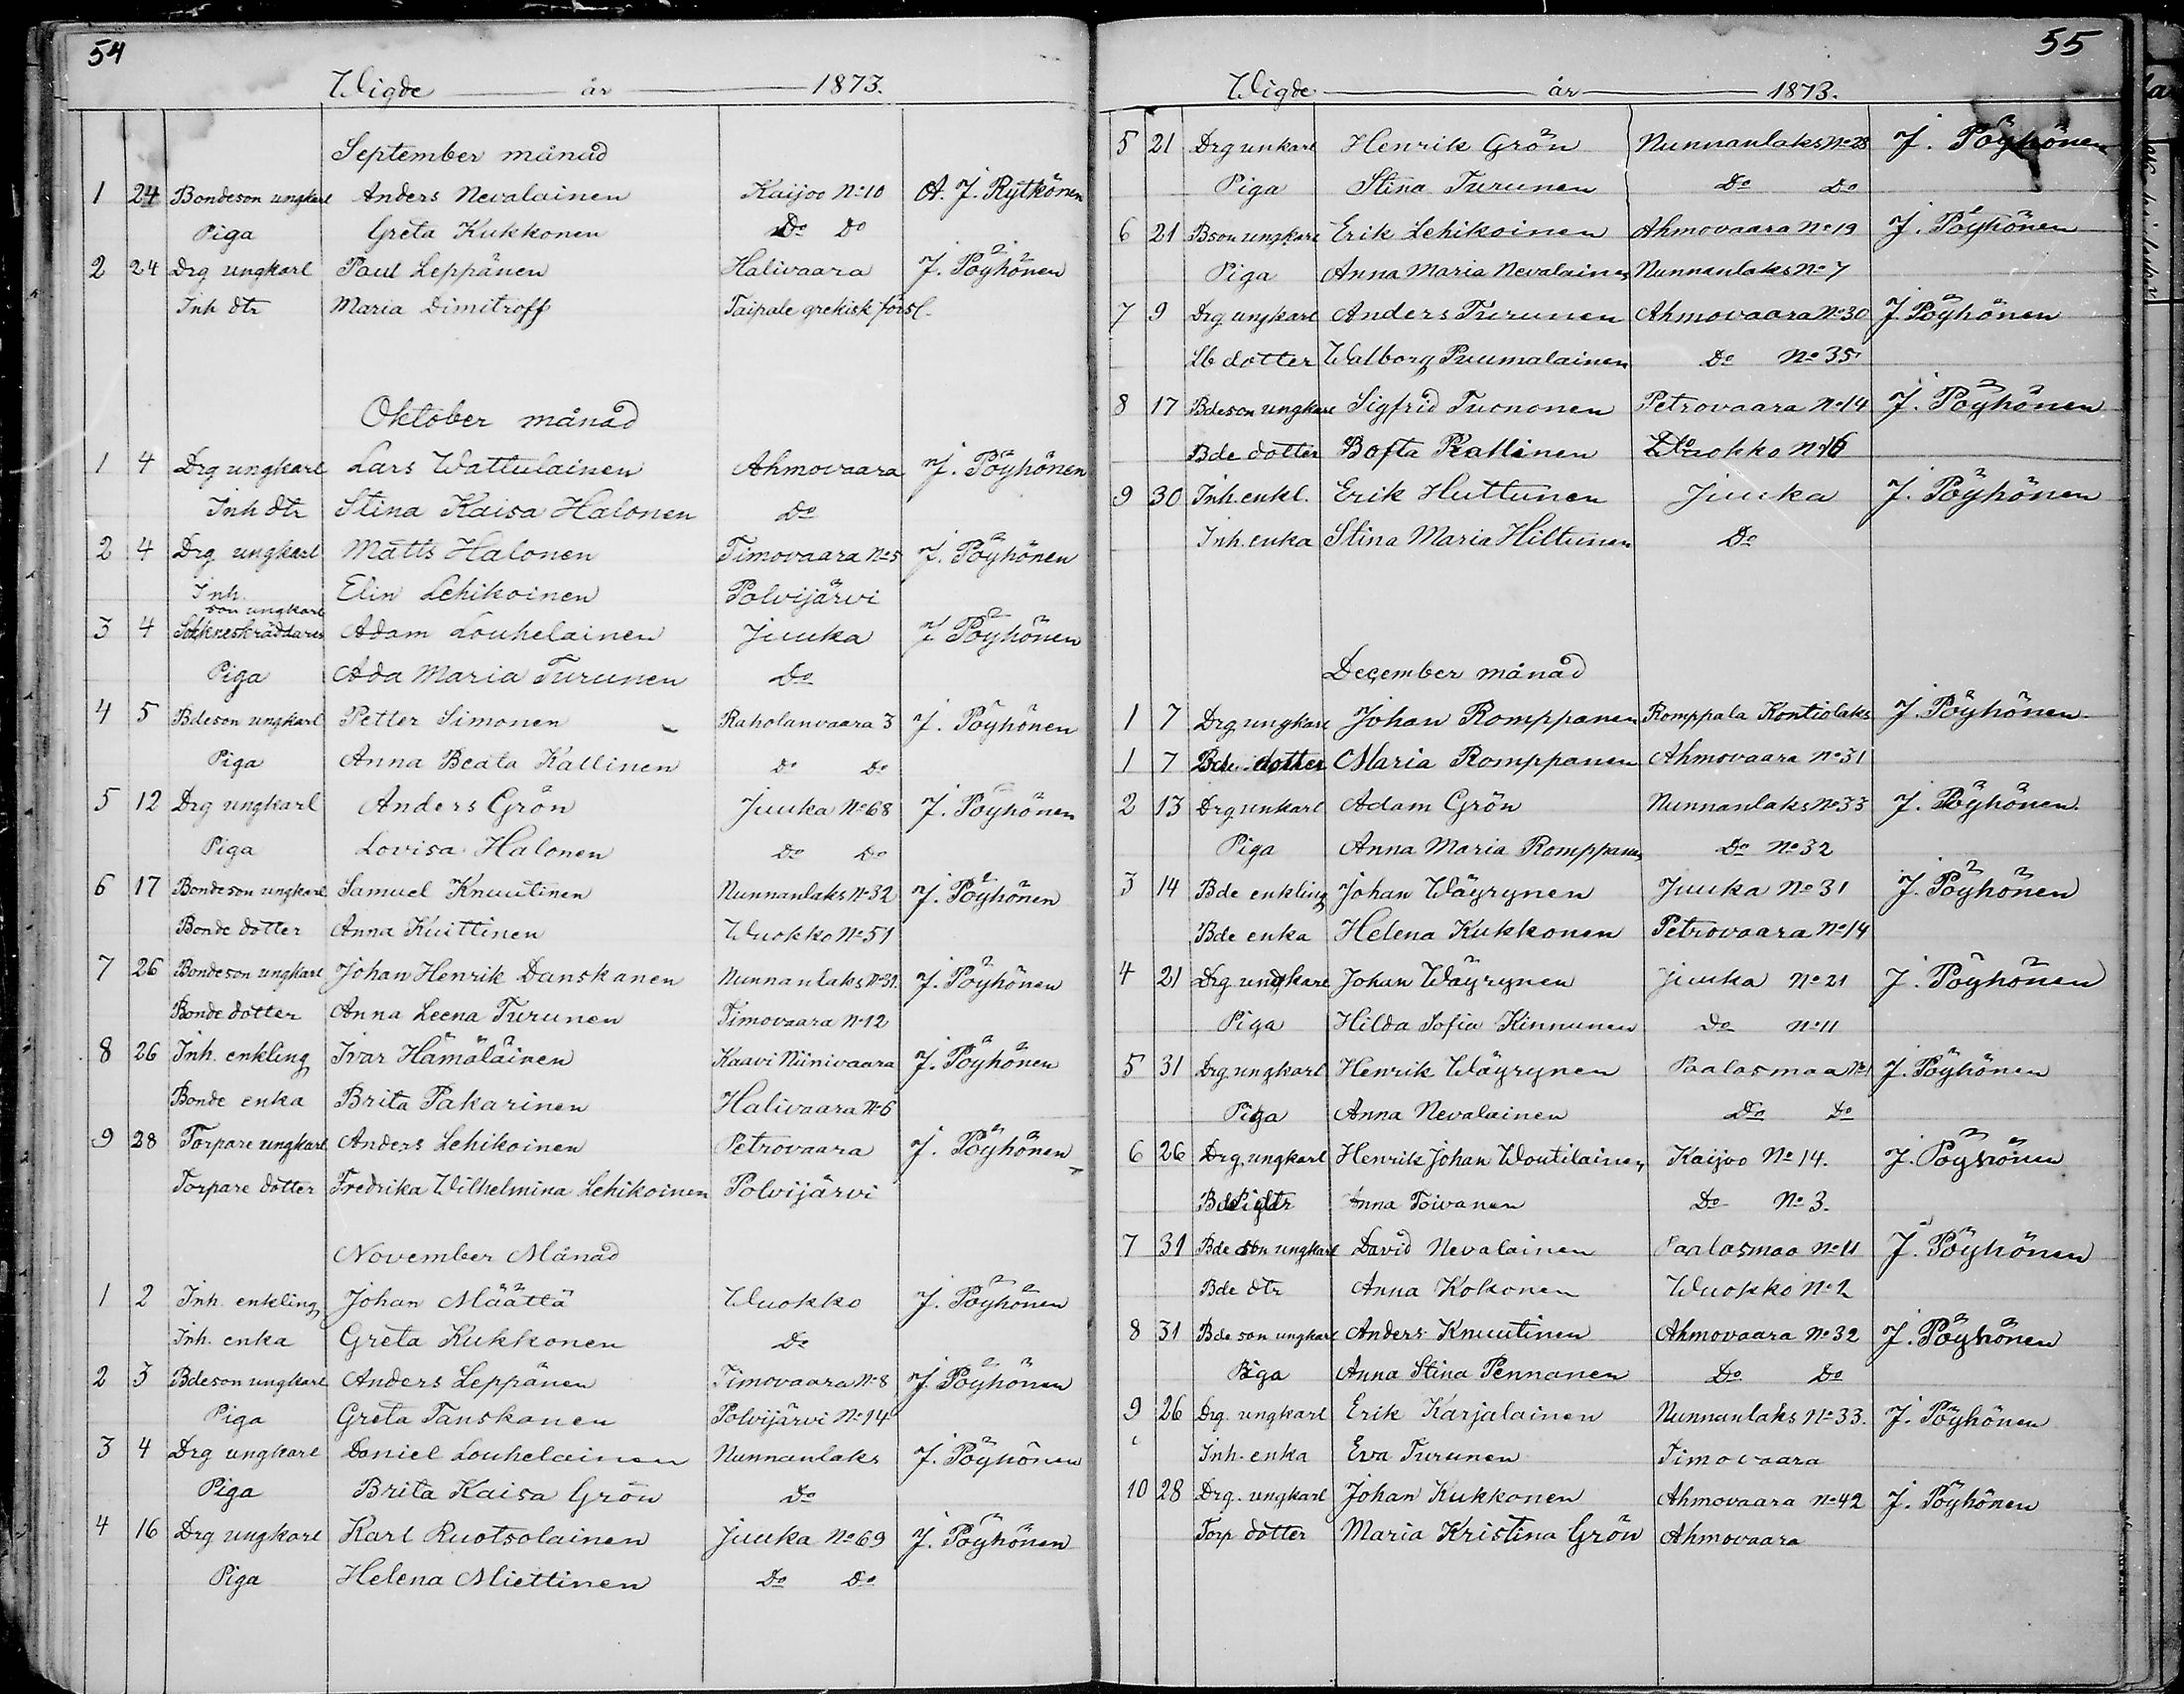 54
Wigde år 1873.
September månad
1 24 Bondeson ungkarl Anders Nevalainen Kaijoo No 10 A. J. Rytkönen
Piga Greta Kukkonen Do Do
2 24 Drg ungkarl Paul Leppänen Halivaara J. Pöyhönen
Inh dtr Maria Dimitroff Taipale grekisk förs.
Oktober månad
1 4 Drg ungkarl Lars Wattulainen Ahmovaara J. Pöyhönen
Inh dtr Stina Kaisa Halonen Do
2 4 Drg ungkarl Matts Halonen Timovaara No 5 J. Pöyhönen
Inh. Elin Lehikoinen Polvijärvi
son ungkarl
3 4 Sokneskräddares Adam Louhelainen Juuka J. Pöyhönen
Piga Ada Maria Turunen Do
4 5 Bdeson ungkarl Petter Simonen Raholanvaara 3 J. Pöyhönen
Piga Anna Beata Kallinen Do Do
5 12 Drg ungkarl Anders Grön Juuka No 68 J. Pöyhönen
Piga Lovisa Halonen Do Do
6 17 Bondeson ungkarl Samuel Knuutinen Nunnanlaks No 32 J. Pöyhönen
Bonde dotter Anna Kuittinen Wuokko No 51
7 26 Bondeson ungkarl Johan Henrik Danskanen Nunnanlaks No 31. J. Pöyhönen
Bonde dotter Anna Leena Turunen Timovaara No 12
8 26 Inh. enkling Ivar Hämäläinen Kaavi Niinivaara J. Pöyhönen
Bonde enka Brita Pakarinen Halivaara No 6
9 28 Torpare ungkarl Anders Lehikoinen Petrovaara J. Pöyhönen
Torpare dotter Fredrika Wilhelmina Lehikoinen Polvijärvi
November Månad
1 2 Inh. enkling Johan Määttä Wuokko J. Pöyhönen
Inh. enka Greta Kukkonen Do
2 3 Bdeson ungkarl Anders Leppänen Timovaara No 8 J. Pöyhönen
Piga Greta Tanskanen Polvijärvi No 14
3 4 Drg ungkarl Daniel Louhelainen Nunnanlaks J. Pöyhönen
Piga Brita Kaisa Grön Do
4 16 Drg ungkarl Karl Ruotsolainen Juuka No 69 J. Pöyhönen
Piga Helena Miettinen Do Do
55
Wigde år 1873.
5 21 Drg unkarl Henrik Grön Nunnanlaks No 28 J. Pöyhönen
Piga Stina Turunen Do Do
6 21 Bson ungkarl Erik Lehikoinen Ahmovaara No 19 J. Pöyhönen
Piga Anna Maria Nevalainen Nunnanlaks No 7
7 9 Drg. ungkarl Anders Turunen Ahmovaara No 30 J. Pöyhönen
Lb dotter Walborg Puumalainen Do No 35
8 17 Bdeson ungkarl Sigfrid Tuononen Petrovaara No 14 J. Pöyhönen
Bde dotter Rallinen No 16
9 30 Inh. enkl. Erik Huttunen Juuka J. Pöyhönen
Inh. enka Stina Maria Hiltunen Do
December månad
1 7 Drg ungkarl Johan Romppanen Romppala Kontiolaks J. Pöyhönen
1 7 Bde dotter Maria Romppanen Ahmovaara No 31
2 13 Drg. unkarl Adam Grön Nunnanlaks No 33 J. Pöyhönen.
Piga Anna Maria Romppanen Do No 32
3 14 Bde enkling Johan Wäyrynen Juuka No 31 J. Pöyhönen
Bde enka Helena Kukkonen Petrovaara No 14
4 21 Drg. ungkarl Johan Wäyrynen Juuka No 21 J. Pöyhönen
Piga Hilda Sofia Kinnunen Do No 11
5 31 Drg. ungkarl Henrik Wäyrynen Paalasmaa No 1 J. Pöyhönen
Piga Anna Nevalainen Do Do
6 26 Drg. ungkarl Henrik Johan Woutilainen Kaijoo No 14. J. Pöyhönen
Bde dtr Anna Toivanen Do No 3.
7 31 Bde son ungkarl David Nevalainen Paalasmaa No 11 J. Pöyhönen
Bde dtr Anna Kokonen Wuokko No 2
8 31 Bde son ungkarl Anders Knuutinen Ahmovaara No 32 J. Pöyhönen
Piga Anna Stina Pennanen Do Do
9 26 Drg. ungkarl Erik Karjalainen Nunnanlaks No 33. J. Pöyhönen
Inh. enka Eva Turunen Timovaara
10 28 Drg. ungkarl Johan Kukkonen Ahmovaara No 42 J. Pöyhönen
Torp dotter Maria Kristina Grön Ahmovaara